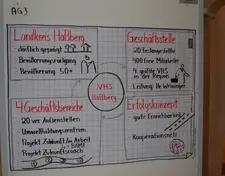 AG3
Landkreis Haßberg
dörflich geprägt
Bevölkerungsrückgang
Bevölkerung 50+
Geschäftsstelle
20 Festangestellte
400 freie Mitarbeiter
4. größte VHS
in der Region
Leitung:
VHS
Haßberg
4 Geschäftsbereiche
20 vor Außenstellen
Umweltbildungszentrum
Projekt Zukunft der Arbeit
Projekt Zukunftscoach
Erfolgskonzept
gute Erreichbarkeit
Kooperationsnetz